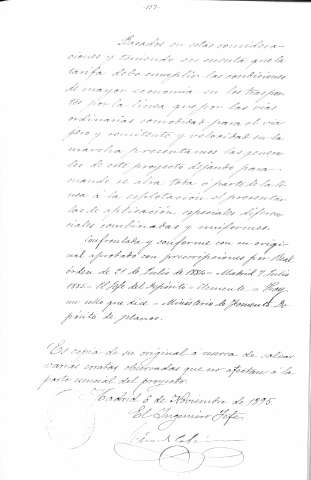 -157-
Basados en estas considera-
ciones y teniendo en cuenta que la
tarifa debe cumplir las condiciones
de mayor economia en los traspor-
tes por la linea que por las vias
ordinarias comodidad para el via
gero y remitente y velocidad en la
marcha presentamos las genera-
les de este proyecto dejando para
cuando se abra toda o parte de la li-
nea á la esplotacion el presentar
las de aplicacion especiales diferen-
ciales combinadas y uniformes.
Confrontada y conforme con su origi-
nal aprobado con prescripciones por Real
órden de 21 de Julio de 1884 - Madrid 7 Julio
El Jefe del Depósito - Clemente - Hay
un sello que dice - Ministerio de Fomento De-
pósito de planos.
Es copia de su original á menos de salvar
varias erratas observadas que no afectan á la
parte esencial del proyecto.
Madrid 6 de Noviembre de 1895
El Ingeniero Jefe